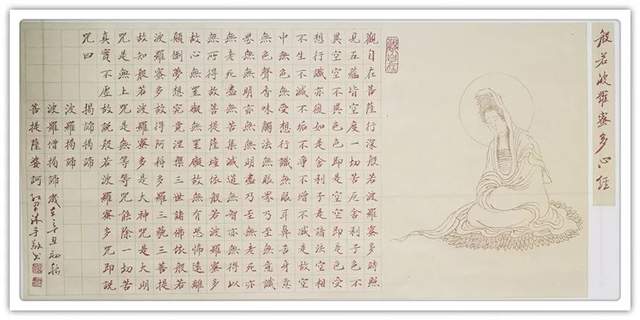 般若波羅蜜多心經
觀自在菩薩行深般若波羅蜜多時照
見五蘊皆空度一切苦厄舍利子色不
異空空不異色色即是空空即是色受
想行識亦復如是舍利子是諸法空相
不生不滅不垢不淨不增不減是故空
中無色無受想行識無眼耳鼻舌身意
無色聲香味觸法無眼界乃至無意識
界無無明亦無無明盡乃至無老死亦
無老死盡無苦集滅道無智亦無得以
無所得故菩提薩埵依般若波羅蜜多
故心無罣礙無罣礙故無有恐怖遠離
顛倒夢想究竟涅槃三世諸佛依般若
波羅蜜多故得阿耨多羅三藐三菩提
故知般若波羅蜜多是大神咒是大明
咒是無上咒是無等等咒能除一切苦
真實不虛故說般若波羅蜜多咒即說
咒曰
揭諦揭諦
波羅揭諦
波羅僧揭諦 歲在辛丑初秋
菩提薩婆訶